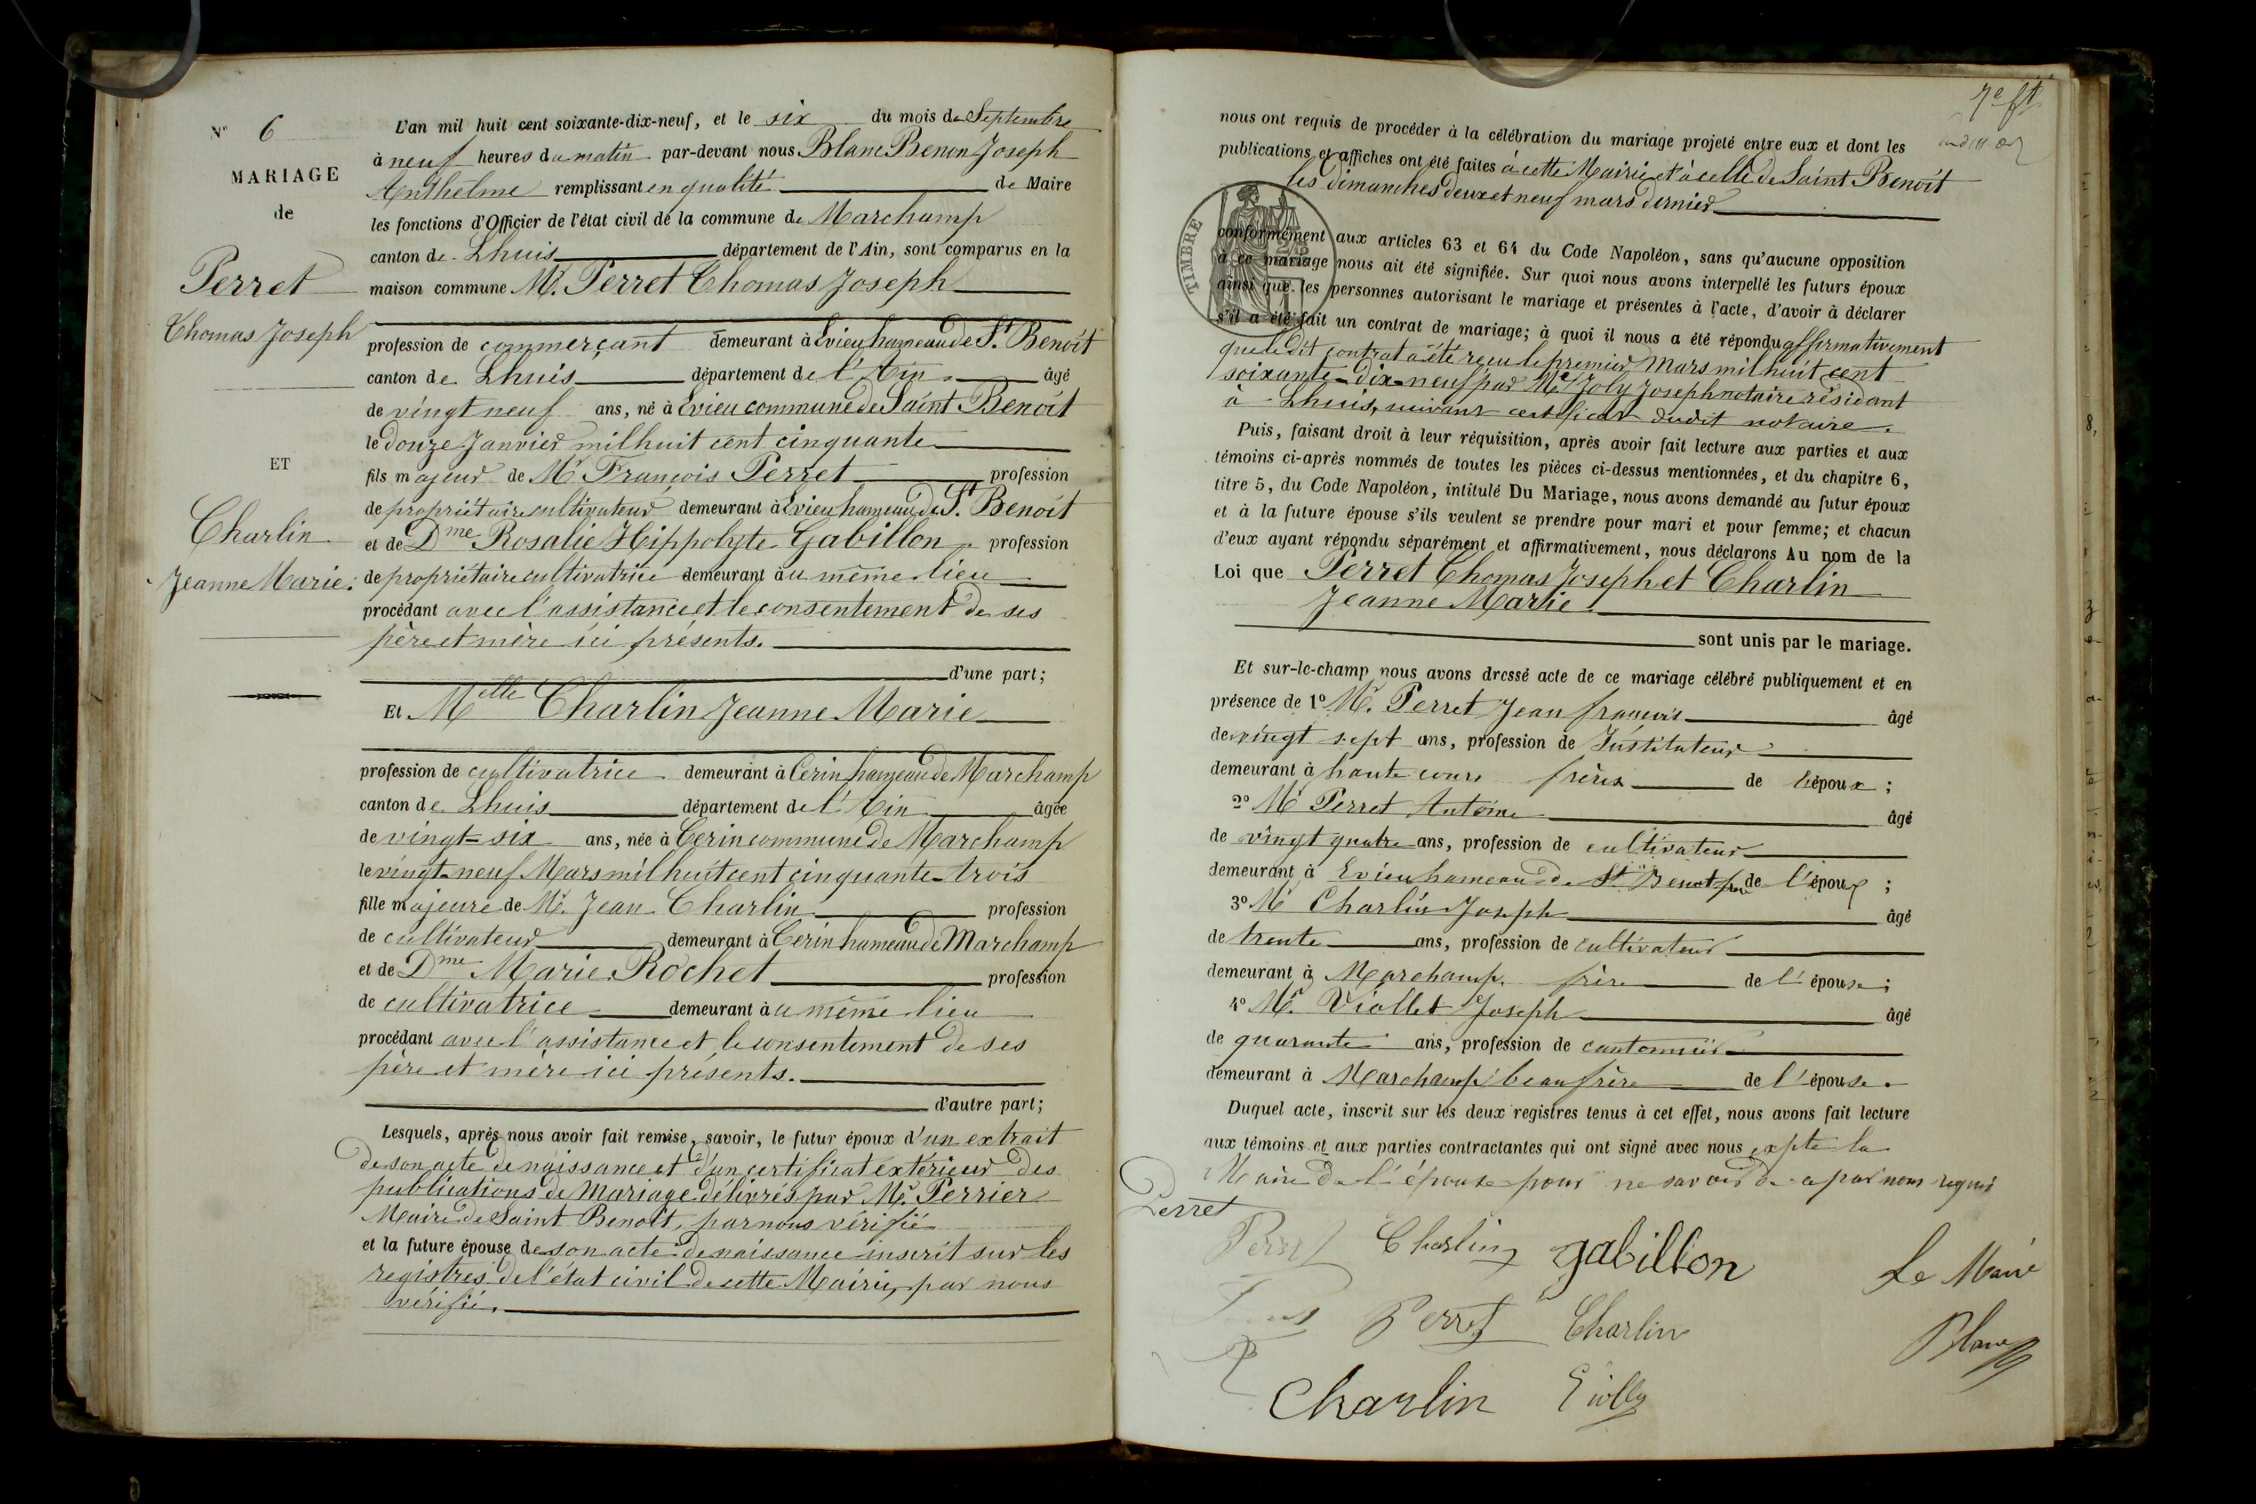 N° 6
MARIAGE
de
Perret
Thomas Joseph
ET
Charlin
Jeanne Marie.
L'an mil huit cent soixante-dix-neuf, et le six du mois de Septembre
à neuf heures du matin par-devant nous Blanc Benon Joseph
Anthelme remplissant en qualité de Maire
les fonctions d'Officier de l'état civil de la commune de Marchamp
canton de Lhuis département de l'Ain, sont comparus en la
maison commune Mr. Perret Thomas Joseph
profession de commerçant demeurant à Evieu hameau de St. Benoit
canton de Lhuis département de l'Ain âgé
de vingt neuf ans, né à Evieu commune de Saint Benoit
le douze Janvier mil huit cent cinquante
fils majeur de Mr François Perret profession
de propriétaire cultivateur demeurant à Evieu hameau de St. Benoit
et de Dme Rosalie Hippolyte Gabillon profession
de propriétaire cultivatrice demeurant au même lieu
procédant avec l'assistance et le consentement de ses
père et mère ici présents.
d'une part;
Et Melle Charlin Jeanne Marie
profession de cultivatrice demeurant à Cerin hameau de Marchamp
canton de Lhuis département de l'Ain âgée
de vingt-six ans, née à Cerin commune de Marchamp
le vingt-neuf Mars mil huit cent cinquante-trois
fille majeure de Mr. Jean Charlin profession
de cultivateur demeurant à Cerin hameau de Marchamp
et de Dme Marie Rochet profession
de cultivatrice demeurant au même lieu
procédant avec l'assistance et le consentement de ses
père et mère ici présents.
d'autre part;
Lesquels, après nous avoir fait remise, savoir, le futur époux d'un extrait
de son acte de naissance et d'un certificat extérieur des
publications de Mariage délivrés par Mr. Perrier
Maire de Saint Benoit, par nous vérifié
et la future épouse de son acte de naissance inscrit sur les
registres de l'état civil de cette Mairie, par nous
vérifié.
7e ft
nous ont requis de procéder à la célébration du mariage projeté entre eux et dont les
publications et affiches ont été faites à cette Mairie et à celle de Saint Benoit
les dimanches deux et neuf mars dernier
TIMBRE
conformément aux articles 63 et 64 du Code Napoléon, sans qu'aucune opposition
à ce mariage nous ait été signifiée. Sur quoi nous avons interpellé les futurs époux
ainsi que les personnes autorisant le mariage et présentes à l'acte, d'avoir à déclarer
s'il a été fait un contrat de mariage; à quoi il nous a été répondu affirmativement
que ledit contrat a été reçu le premier Mars mil huit cent
soixante-dix-neuf par Me Joly Joseph notaire résidant
à Lhuis, suivant certificat dudit notaire.
Puis, faisant droit à leur réquisition, après avoir fait lecture aux parties et aux
témoins ci-après nommés de toutes les pièces ci-dessus mentionnées, et du chapitre 6,
titre 5, du Code Napoléon, intitulé Du Mariage, nous avons demandé au futur époux
et à la future épouse s'ils veulent se prendre pour mari et pour femme; et chacun
d'eux ayant répondu séparément et affirmativement, nous déclarons Au nom de la
Loi que Perret Thomas Joseph et Charlin
Jeanne Marie
sont unis par le mariage.
Et sur-le-champ nous avons dressé acte de ce mariage célébré publiquement et en
présence de 1° Mr. Perret Jean françois âgé
de vingt sept ans, profession de Instituteur
demeurant à haute cour frère de l'époux;
2° Mr Perret Antoine âgé
de vingt quatre ans, profession de cultivateur
demeurant à Evieu hameau de St Benoit frère de l'époux;
3° Mr Charlin Joseph âgé
de trente ans, profession de cultivateur
demeurant à Marchamp. frère de l'épouse;
4° Mr. Viollet Joseph âgé
de quarante ans, profession de cantonnier
demeurant à Marchamp beau frère de l'épouse.
Duquel acte, inscrit sur les deux registres tenus à cet effet, nous avons fait lecture
aux témoins et aux parties contractantes qui ont signé avec nous expte la
Maire de l'épouse pour ne savoir de ce par nous requis
Perret
Perret Charlin gabillon Le Maire
Perret Charlin Blanc
Charlin